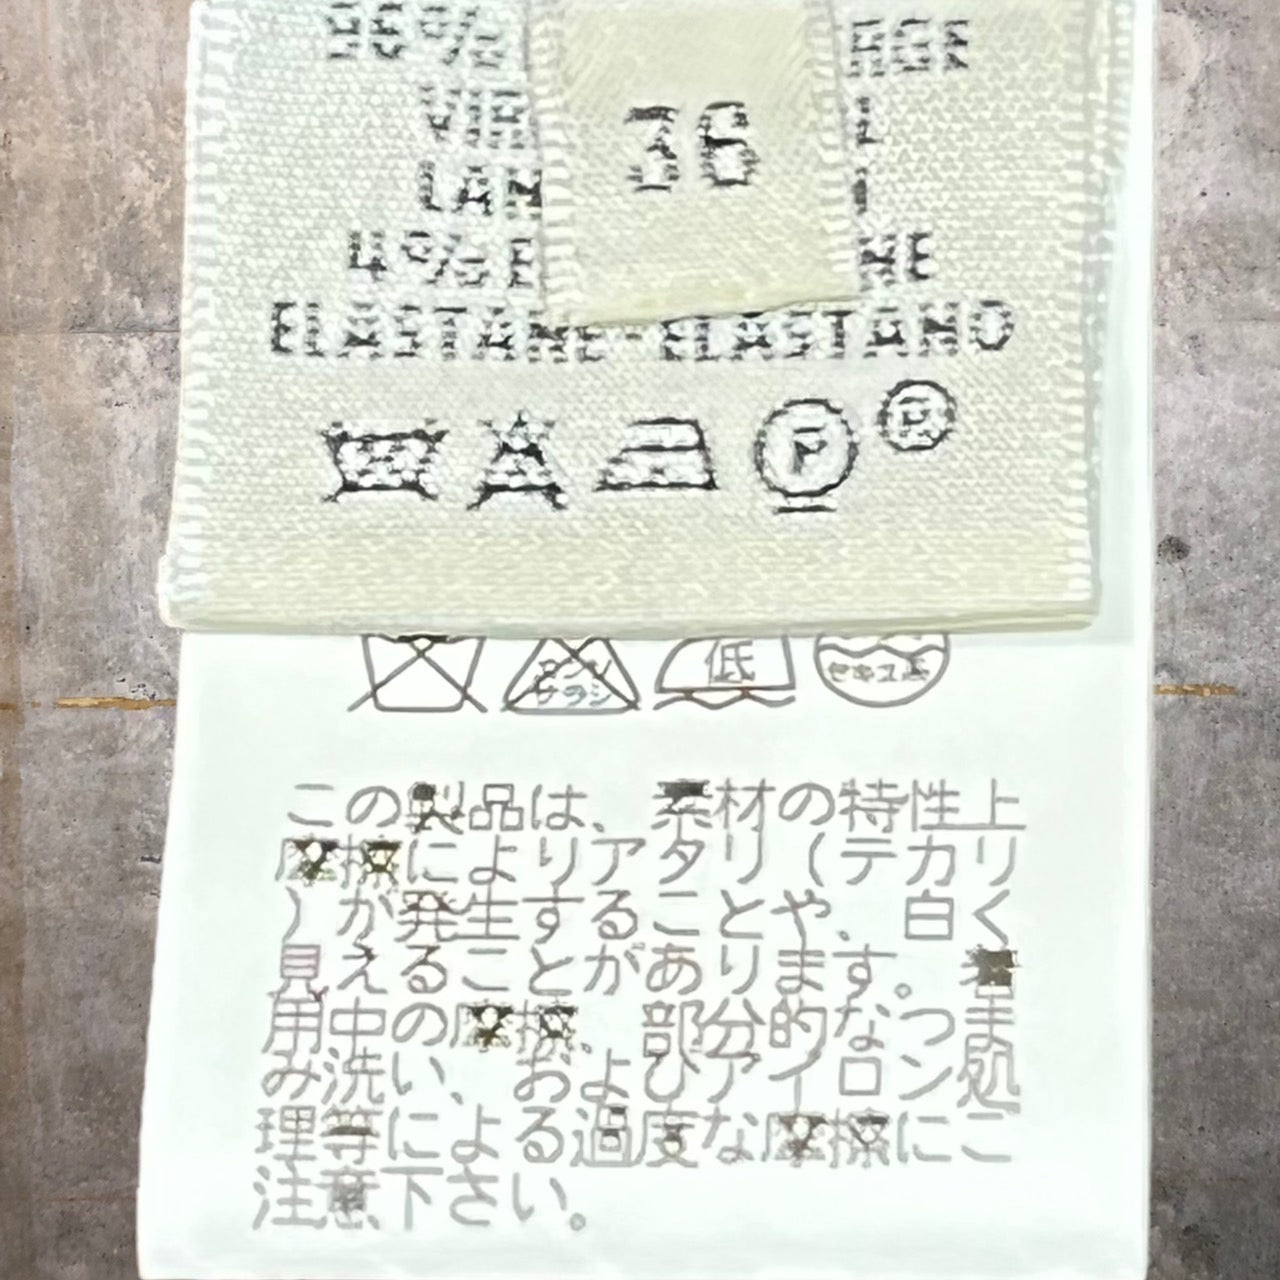 36
4%
ELASTANE-ELASTANO
P
低
セキユ系
この製品は、素材の特性上
摩擦によりアタリ（テカリ
）が発生することや、白く
見えることがあります。着
用中の摩擦、部分的なつま
み洗い、およびアイロン処
理等による過度な摩擦にご
注意下さい。